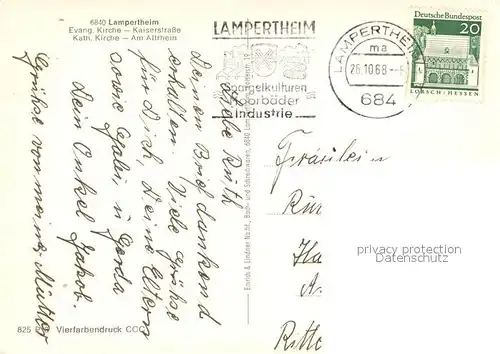 6840 Lampertheim
Evang. Kirche – Kaiserstraße
Kath. Kirche – Am Altrhein
LAMPERTHEIM
Spargelkulturen
Moorbäder
Industrie
LAMPERTHEIM
ma
26.10.68
684
Deutsche Bundespost
20
LORSCH · HESSEN
Liebe Ruth
Deinen Brief dankend
erhalten. Viele Grüße
für Dich, Deine Eltern
sowie u Gerda
Dein Onkel Jakob.
Grüße von meiner Mutter
Emrich & Lindner Nachf., Buch- und Schreibwaren, 6840 Lampertheim
Fräulein
825 Vierfarbendruck CCC
privacy protection
AnsVM